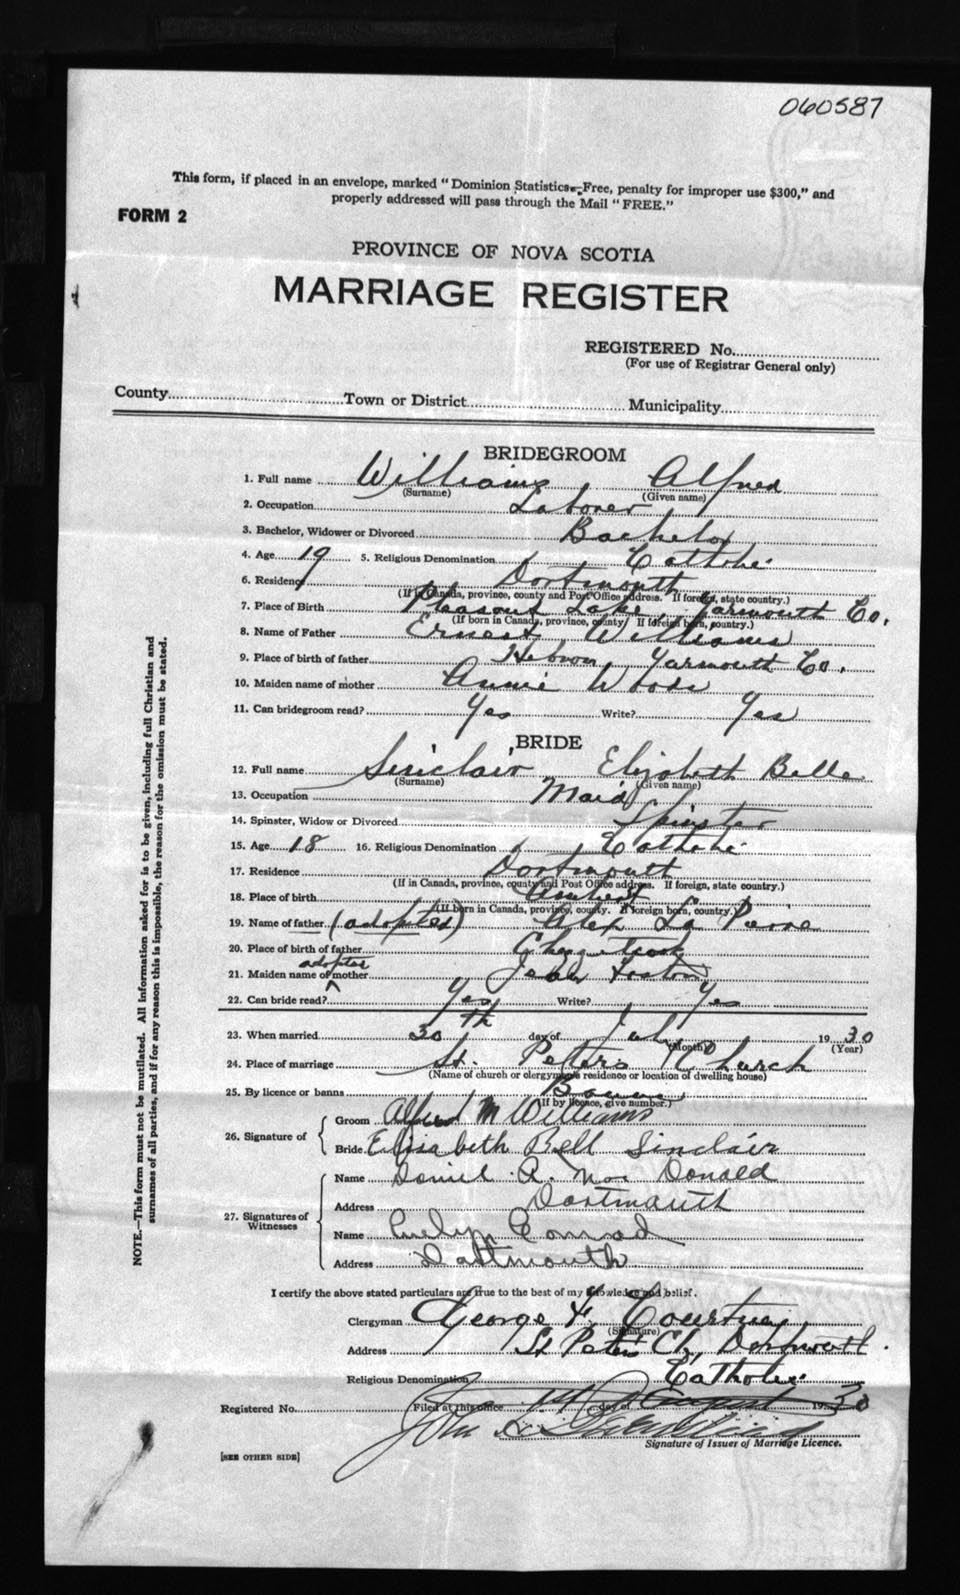 060587
This form, if placed in an envelope, marked "Dominion Statistics—Free, penalty for improper use $300," and
properly addressed will pass through the Mail "FREE."
FORM 2
PROVINCE OF NOVA SCOTIA
MARRIAGE REGISTER
REGISTERED No.
(For use of Registrar General only)
County Town or District Municipality
BRIDEGROOM
1. Full name Williams Alfred
(Surname) (Given name)
2. Occupation Laborer
3. Bachelor, Widower or Divorced Bachelor
4. Age 19 5. Religious Denomination Catholic
6. Residence Dartmouth
(If in Canada, province, county and Post Office address. If foreign, state country.)
7. Place of Birth Pleasant Lake, Yarmouth Co.
(If born in Canada, province, county. If foreign born, country.)
8. Name of Father Ernest Williams
9. Place of birth of father Hebron, Yarmouth Co.
10. Maiden name of mother Annie Woods
11. Can bridegroom read? Yes Write? Yes
BRIDE
12. Full name Sinclair Elizabeth Belle
(Surname) (Given name)
13. Occupation Maid
14. Spinster, Widow or Divorced Spinster
15. Age 18 16. Religious Denomination Catholic
17. Residence Dartmouth
(If in Canada, province, county and Post Office address. If foreign, state country.)
18. Place of birth Amherst
(If born in Canada, province, county. If foreign born, country.)
19. Name of father (adopted) Alex La Pierre
20. Place of birth of father Chezzetcook
adopted
21. Maiden name of mother
22. Can bride read? Yes Write? Yes
23. When married 30th day of July 1930
(Month) (Year)
24. Place of marriage St. Peters Church
(Name of church or clergyman's residence or location of dwelling house)
25. By licence or banns Banns
(If by licence, give number.)
26. Signature of
Groom Alfred M Williams
Bride Elisabeth Bell Sinclair
27. Signatures of Witnesses
Name Daniel A. Mac Donald
Address Dartmouth
Name Evelyn Conrad
Address Dartmouth
I certify the above stated particulars are true to the best of my knowledge and belief.
Clergyman George F. Courtney
(Signature)
Address St Peter's Ch, Dartmouth.
Religious Denomination Catholic
Registered No. Filed at this office 1st day of August 1930
John
Signature of Issuer of Marriage Licence.
[SEE OTHER SIDE]
NOTE.—This form must not be mutilated. All information asked for is to be given, including full Christian and
surnames of all parties, and if for any reason this is impossible, the reason for the omission must be stated.